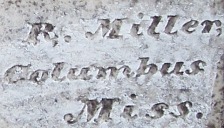 R. Miller,
Columbus
Miss.